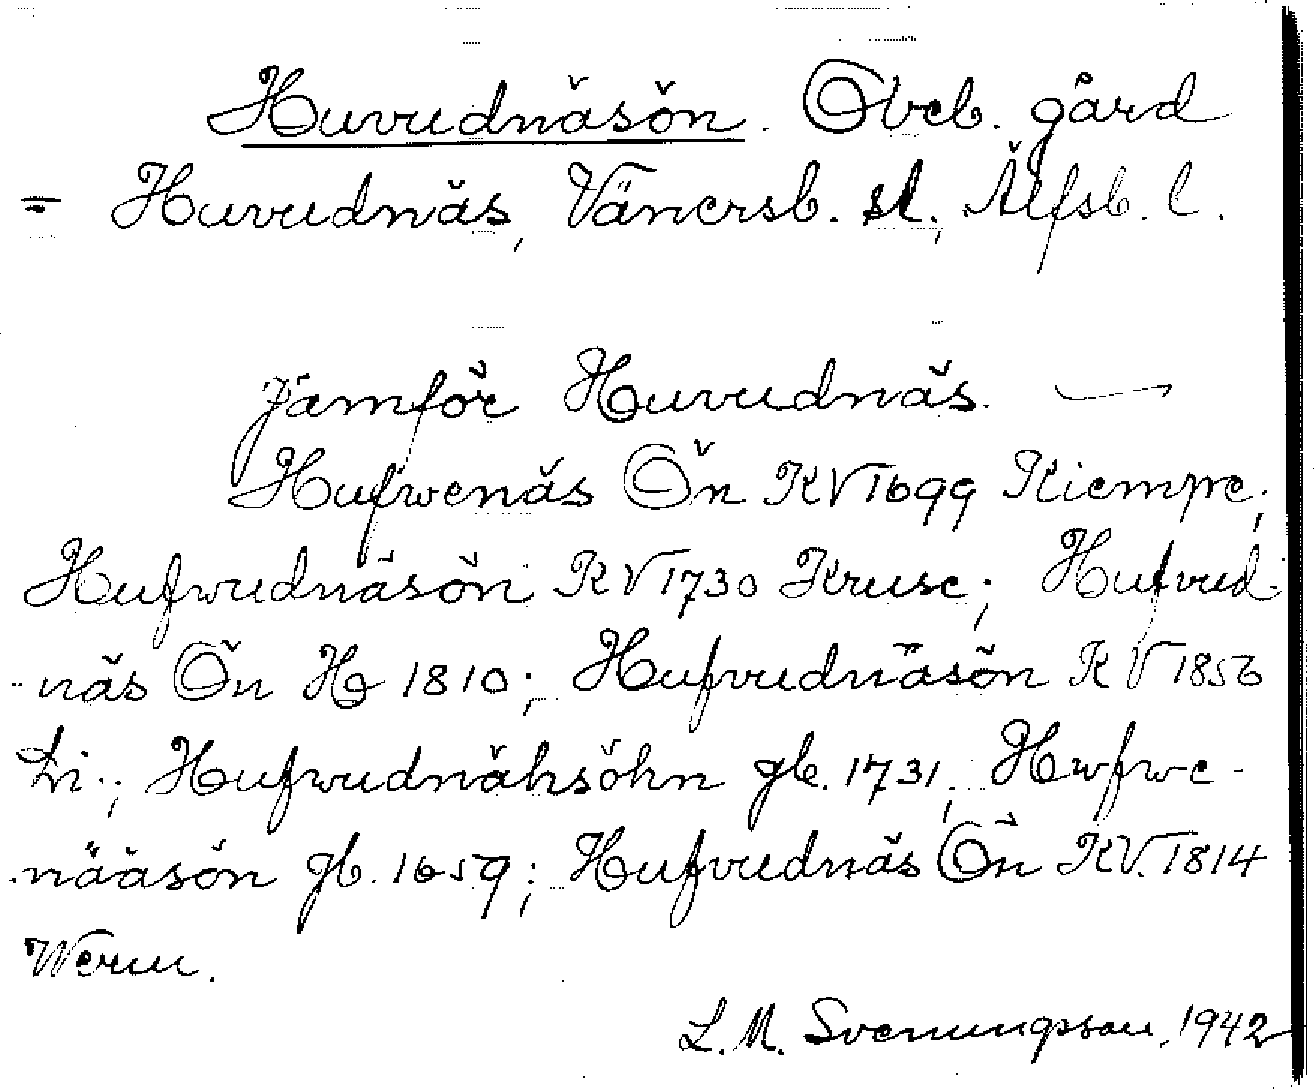 Huvudnäsön. Obeb. gård
= Huvudnäs, Vänersb. st., Älfsb. l.
Jämför Huvudnäs. —
Hufwenäs Ön KV 1699 Kiempe;
Hufwudnäsön KV 1730 Kruse; Hufvud-
näs Ön H 1810; Hufvudnäsön KV 1856
Li.; Hufwudnähsöhn gb. 1731; Hwfwe-
nääsön gb. 1659; Hufvudnäs Ön KV. 1814
Werm.
L. M. Svenungsson, 1942